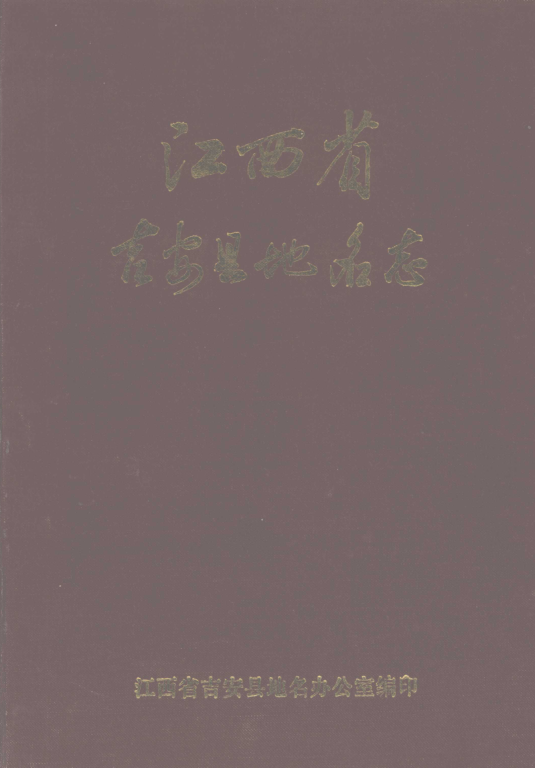 江西省
吉安县地名志
江西省吉安县地名办公室编印